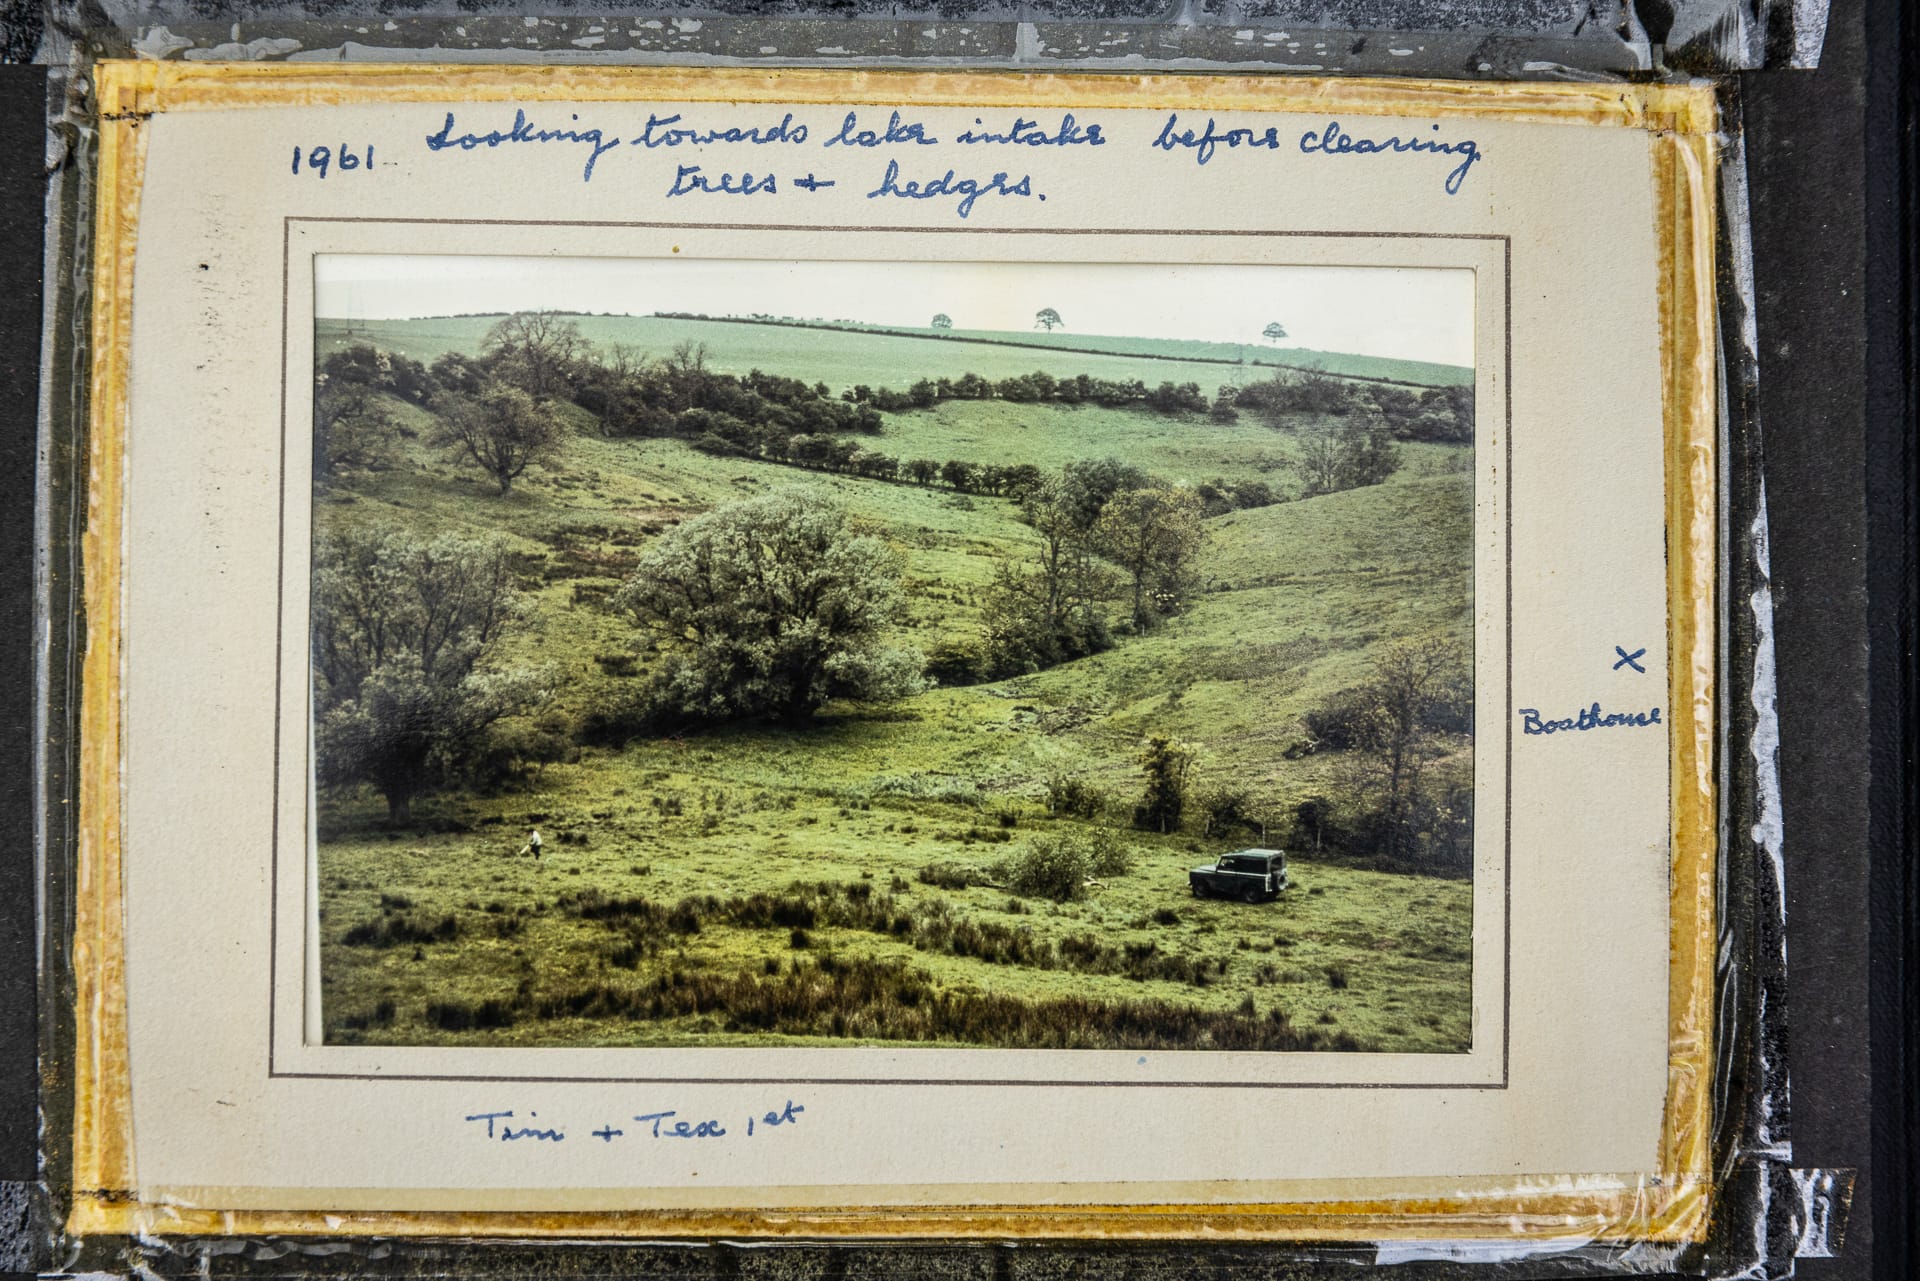 1961 Looking towards lake intake before clearing
trees + hedges.
x
Boathouse
Tim + Tex 1st